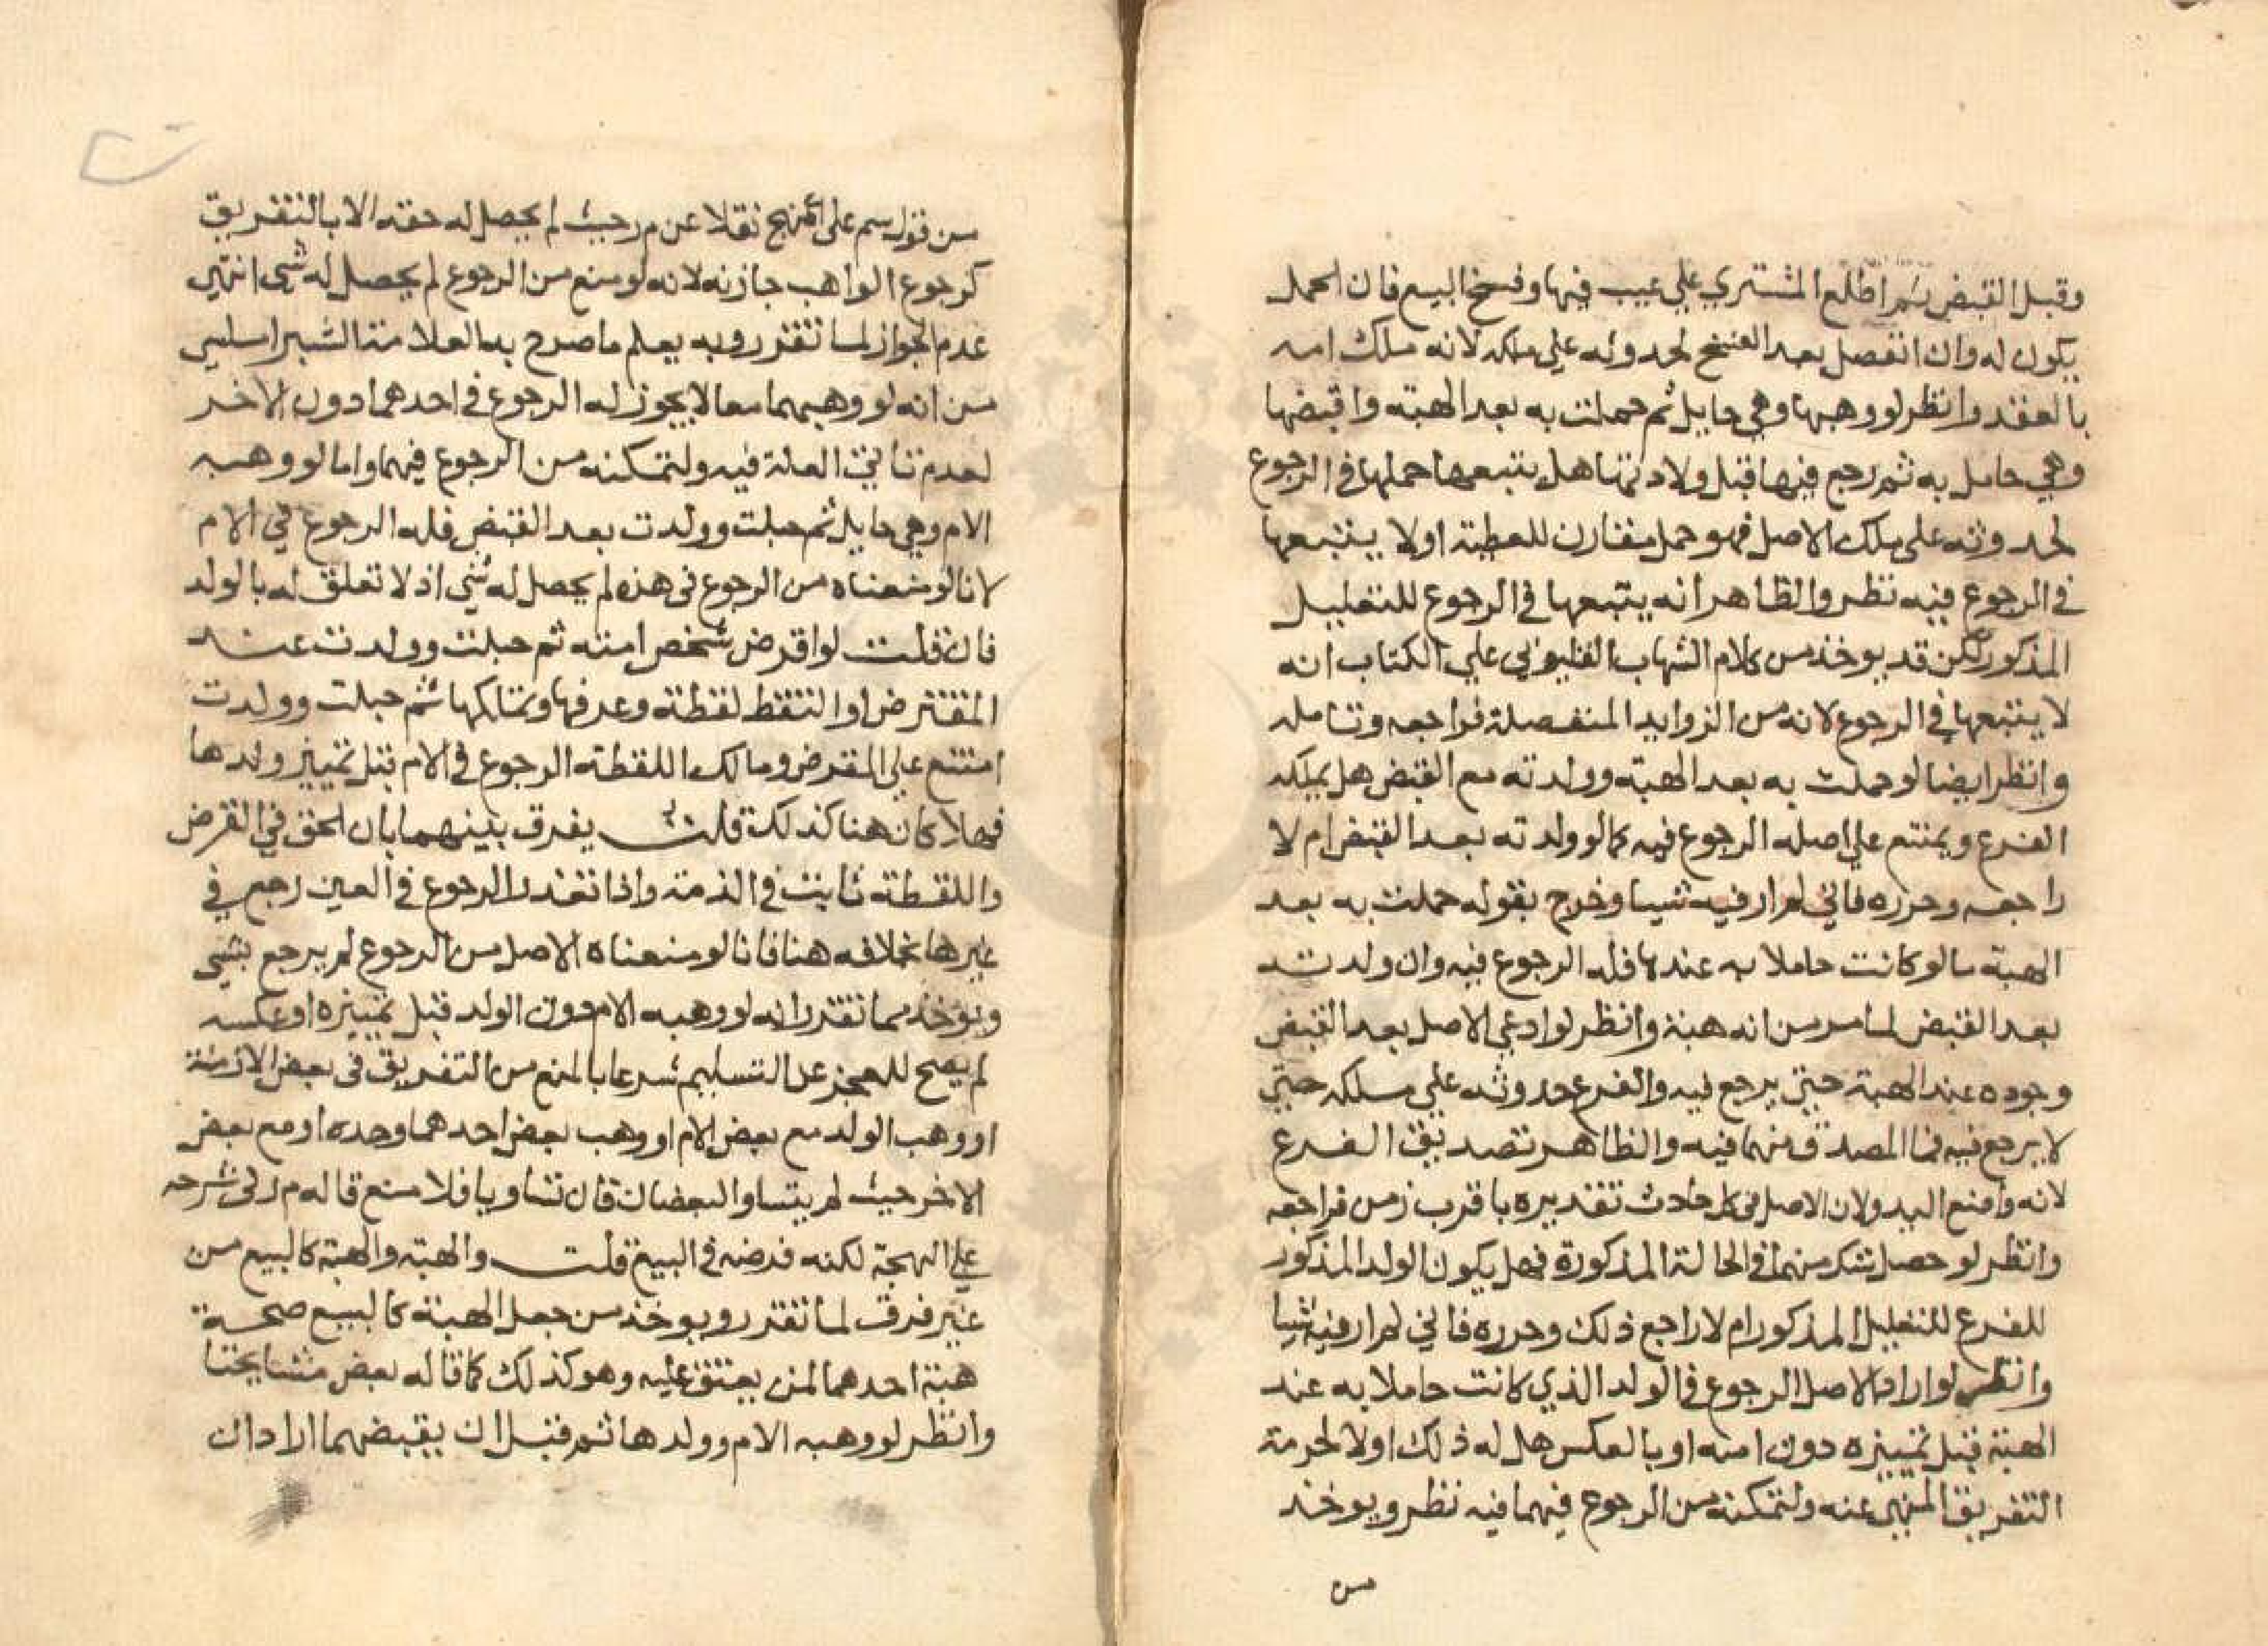 وقبل القبض ثم اطلع المشتري علي عيب فيها وفسخ البيع فان الحمل
يكون له وان انفصل بعد الفسخ لحدوثه علي ملكه لانه ملك امه
بالعقد وانظر لو وهبها وهي حايل ثم حملت به بعد الهبة واقبضها
وهي حامل به ثم رجع فيها قبل ولادتها هل يتبعها حملها في الرجوع
لحدوثه علي ملك الاصل فهو حمل مقارن للعطية اولا يتبعها
في الرجوع فيه نظر والظاهر انه يتبعها في الرجوع للتعليل
المذكور لكن قد يوخذ من كلام الشهاب القليوبي علي الكتاب انه
لا يتبعها في الرجوع لانه من الزوايد المنفصلة فراجعه وتامله
وانظر ايضا لو حملت به بعد الهبة وولدته مع القبض هل يملكه
الفرع ويمتنع علي اصله الرجوع فيه كما لو ولدته بعد القبض ام لا
راجعه وحرره فاني لم ار فيه شيا وخرج بقوله حملت به بعد
الهبة ما لو كانت حاملا به عندها فله الرجوع فيه وان ولدته
بعد القبض لما مر من انه هبة وانظر لو ادعي الاصل بعد القبض
وجوده عند الهبة حتي يرجع فيه والفرع حدوثه علي ملكه حتي
لا يرجع فيه فما المصدق منهما فيه والظاهر تصديق الفرع
لانه واضع اليد ولان الاصل في كل حادث تقديره باقرب زمن فراجعه
وانظر لو حصل شك منهما في الحالة المذكورة فهل يكون الولد المذكور
للفرع للتعليل المذكور ام لا راجع ذلك وحرره فاني لم ار فيه شيا
وانظر لو اراد الاصل الرجوع في الولد الذي كانت حاملا به عند
الهبة قبل تمييزه دون امه او بالعكس هل له ذلك اولا لحرمة
التفريق المنهي عنه ولتمكنه من الرجوع فيهما فيه نظر ويوخذ
من
من قول سم علي المنهج نقلا عن م ر حيث لم يحصل له حقه الا بالتفريق
كرجوع الواهب جاز له لانه لو منع من الرجوع لم يحصل له شي انتهي
عدم الجواز لما تقرر وبه يعلم ما صرح به العلامة الشبراملسي
من انه لو وهبهما معا لا يجوز له الرجوع في احدهما دون الاخر
لعدم تاتي العلة فيه ولتمكنه من الرجوع فيهما واما لو وهبه
الام وهي حايل ثم حبلت وولدت بعد القبض فله الرجوع في الام
لانا لو منعناه من الرجوع في هذه لم يحصل له شي اذ لا تعلق له بالولد
فان قلت لو اقرض شخص امته ثم حبلت وولدت عند
المقترض او التقط لقطة وعرفها وتملكها ثم حبلت وولدت
امتنع علي المقرض ومالك اللقطة الرجوع في الام قبل تمييز ولدها
فهلا كان هنا كذلك قلت يفرق بينهما بان الحق في القرض
واللقطة ثابت في الذمة واذا تعذر الرجوع في العين رجع في
غيرها بخلافه هنا فانا لو منعناه الاصل من الرجوع لم يرجع بشي
ويوخذ مما تقرر انه لو وهبه الام دون الولد قبل تمييزه او عكسه
لم يصح للعجز عن التسليم شرعا بالمنع من التفريق في بعض الازمنة
او وهب الولد مع بعض الام او وهب بعض احدهما وحده او مع بعض
الاخر حيث لم يتساو البعضان فان تساويا فلا منع قاله م ر في شرحه
علي البهجة لكنه فرضه في البيع قلت والهبة والهبة كالبيع من
غير فرق لما تقرر ويوخذ من جعل الهبة كالبيع صحة
هبة احدهما لمن يعتق عليه وهو كذلك كما قاله بعض مشايخنا
وانظر لو وهبه الام وولدها ثم قبل ان يقبضهما اراد ان